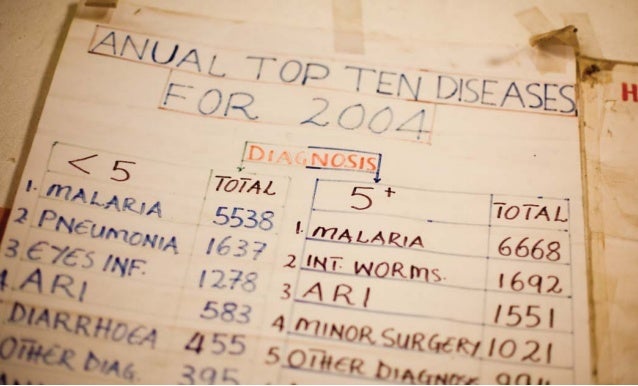 ANUAL TOP TEN DISEASES
FOR 2004
DIAGNOSIS
< 5 TOTAL
1. MALARIA 5538
2 PNEUMONIA 1637
3. EYES INF. 1278
4. ARI 583
DIARRHOEA 455
OTHER DIAG. 395
5+ TOTAL
1. MALARIA 6668
2 INT. WORMS. 1692
3 ARI 1551
4 MINOR SURGERY 1021
5 OTHER DIAGNOSE
H